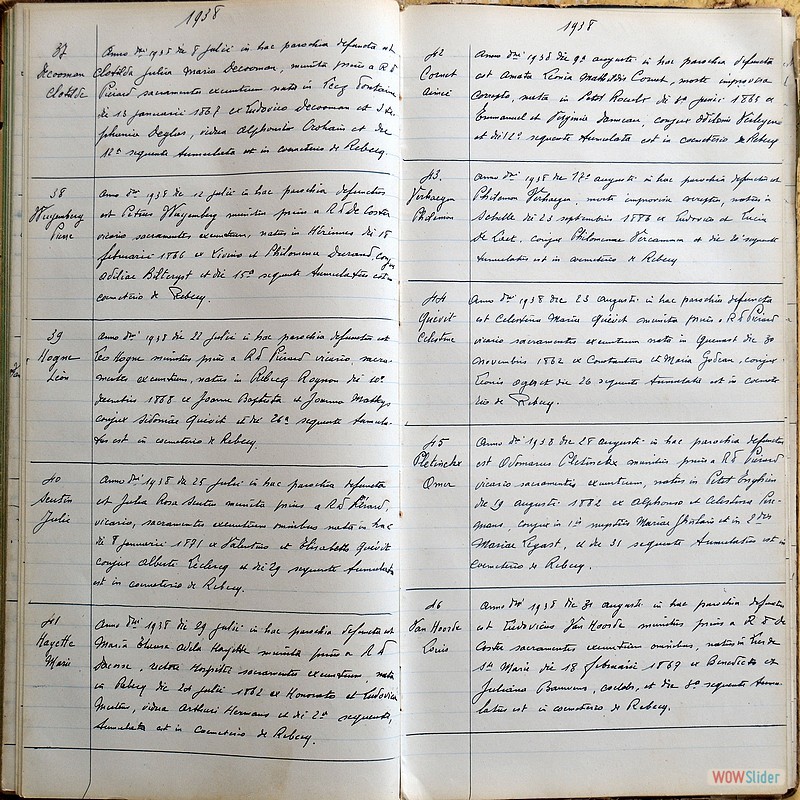 1938
37
Decooman
Clotilde
Anno dni 1938 die 8 julii in hac parochia defuncta est
Clotilda Julia Maria Decooman, munita prius a R d
Pierard sacramentis exeuntium nata in
die 13 januarii 1867 ex Ludovico Decooman et
vidua Alphonsi et die
12a sequente tumulata est in coemeterio de Rebecq.
38
Wuyenberg
Pierre
Anno dni 1938 die 12 julii in hac parochia defunctus
est Petrus Wuyenberg munitus prius a R d De Coster
vicario sacramentis exeuntium, natus in Hérinnes die 18
februarii 1866 ex Livino et Philomena Durand, conjux
Adiliae Bilteryst et die 15a sequente tumulatus est in
coemeterio de Rebecq.
39
Hogne
Léon
Anno dni 1938 die 22 julii in hac parochia defunctus est
Leo Hogne munitus prius a R d Pierard vicario, sacra-
mentis exeuntium, natus in Rebecq Rognon die 10a
decembris 1868 ex Joanne Baptista et Joanna Matthys
conjux Sidoniae Quievit et die 26a sequente tumula-
tus est in coemeterio de Rebecq.
40
Seutin
Julie
Anno dni 1938 die 25 julii in hac parochia defuncta
est Julia Rosa Seutin munita prius a R d Pierard,
vicario, sacramentis exeuntium omnibus nata in hac
die 8 januarii 1871 ex Valentino et Elisabetta Quievit
conjux Alberti Leclercq et die 29 sequente tumulata
est in coemeterio de Rebecq.
41
Hayette
Marie
Anno dni 1938 die 29 julii in hac parochia defuncta est
Maria Theresa Adila Hayette munita prius a R d
rectore Hospitii sacramentis exeuntium, nata
in Rebecq die 24 julii 1862 ex Honorato et Ludovica
vidua Arthuri Hermans et die 2a sequente,
tumulata est in coemeterio de Rebecq.
1938
42
Cornet
Aimée
Anno dni 1938 die 9a augusti in hac parochia defuncta
est Amata Leonia Mathildis Cornet, morte improvisa
correpta, nata in Petit Roeulx die junii 1865 ex
Emmanuel et Virginia Danneau, conjux
et die 12a sequente tumulata est in coemeterio de Rebecq
43.
Verhaegen
Philémon
Anno dni 1938 die 17a augusti in hac parochia defunctus est
Philemon Verhaegen, morte improvisa correptus, natus in
Schelle die 23 septembris 1886 ex Ludovico et Lucia
De Laet, conjux Philomenae Vercammen et die 20 sequente
tumulatus est in coemeterio de Rebecq
44
Quievit
Celestine
Anno dni 1938 die 23 augusti in hac parochia defuncta
est Celestina Maria Quievit munita prius a R d Pierard
vicario sacramentis exeuntium nata in Quenast die 30
novembris 1862 ex Constantino et Maria Godeau, conjux
et die 26 sequente tumulata est in coemete-
rio de Rebecq.
45
Pletinckx
Omer
Anno dni 1938 die 28 augusti in hac parochia defunctus
est Odomarus Pletinckx munitus prius a R d Pierard
vicario sacramentis exeuntium, natus in Petit Enghien
die 19 augusti 1882 ex Alphonso et Celestina
conjux in 1is nuptiis Mariae Ghislain et in 2dis
Mariae Legast, et die 31 sequente tumulatus est in
coemeterio de Rebecq.
46
Van Hoorde
Louis
Anno dni 1938 die 31 augusti in hac parochia defunctus
est Ludovicus Van Hoorde munitus prius a R d De
Coster sacramentis exeuntium omnibus, natus in
Ste Marie die 18 februarii 1867 ex Benedicto et
Juliana coelebs, et die 3a sequente tumu-
latus est in coemeterio de Rebecq.
WOWSlider